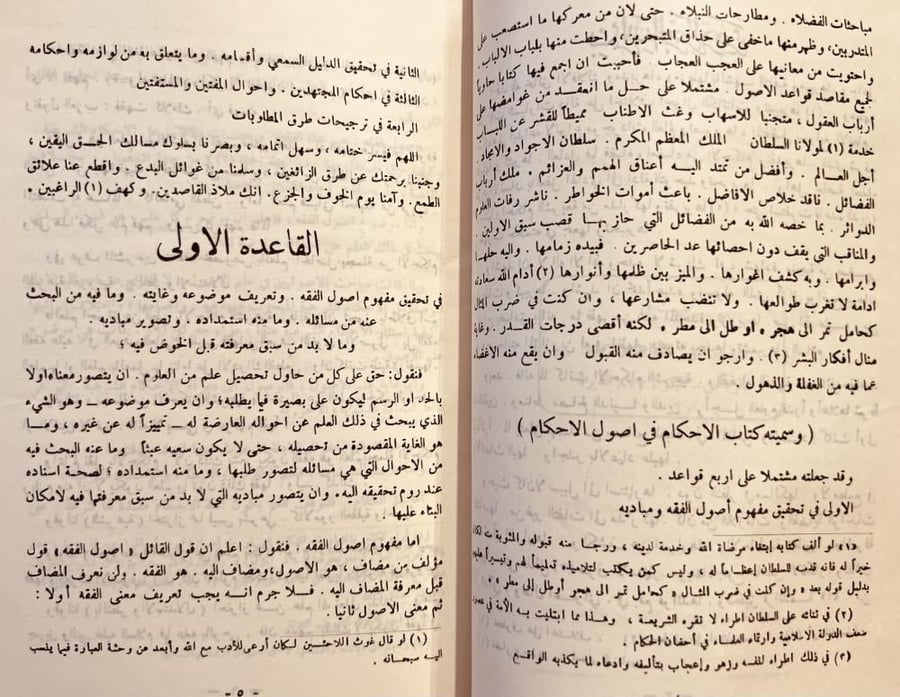 مباحثات الفضلاء . ومطارحات النبلاء . حتى لان من معركها ما استصعب على
المتدربين، وظهر منها ما خفى على حذاق المتبحرين، واحطت منها بلباب الالباب .
واحتويت من معانيها على العجب العجاب . فأحببت ان اجمع فيها كتابا حاوياً
لجميع مقاصد قواعد الاصول . مشتملا على حل ما انعقد من غوامضها على
أرباب العقول ، متجنبا للاسهاب وغث الاطناب مميطاً للقشر عن اللباب
خدمة (١) لمولانا السلطان الملك المعظم المكرم . سلطان الاجواد والامجاد
أجل العالم . وأفضل من تمتد اليه أعناق الهمم والعزائم . ملك أرباب
الفضائل . ناقد خلاص الافاضل . باعث أموات الخواطر . ناشر رفات العلوم
الدواثر . بما خصه الله به من الفضائل التي حاز بها قصب سبق الاولين .
والمناقب التي يقف دون احصائها عد الحاصرين . فبيده زمامها . واليه حلها
وابرامها . وبه كشف اغوارها . والميز بين ظلمها وأنوارها (٢) أدام الله سعادته
ادامة لا تغرب طوالعها . ولا تنضب مشارعها ، وان كنت في ضرب المثال
كحامل تمر الى هجر ، او طل الى مطر . لكنه أقصى درجات القدر . وغاية
منال أفكار البشر (٣) . وارجو ان يصادف منه القبول وان يقع منه الاغضاء
عما فيه من الغفلة والذهول .
( وسميته كتاب الاحكام في اصول الاحكام )
وقد جعلته مشتملا على اربع قواعد .
الاولى في تحقيق مفهوم أصول الفقه ومباديه
(١) لو ألف كتابه إبتغاء مرضاة الله وخدمة لدينه ، ورجا منه قبوله والمثوبة منه لكان
خيراً له فانه قدب السلطان إعظاماً له ، وليس كمن يكتب لتلاميذه تعليماً لهم وتيسيراً عليهم
بدليل قوله بعد « وإن كنت في ضرب المثال « كحامل تمر الى هجر أوطل إلى مطر » .
(٢) في ثنائه على السلطان اطراء لا تقره الشريعة ، وهذا مما ابتليت به الأمة في عصور
ضعف الدولة الاسلامية وارتماء العلماء في أحضان الحكام .
(٣) في ذلك اطراء لنفسه وزهو وإعجاب بتأليفه وادعاء لما يكذبه الواقع
الثانية في تحقيق الدليل السمعي وأقسامه . وما يتعلق به من لوازمه واحكامه
الثالثة في احكام المجتهدين . واحوال المفتين والمستفتين
الرابعة في ترجيحات طرق المطلوبات
اللهم فيسر ختامه ، وسهل اتمامه ، وبصرنا بسلوك مسالك الحق اليقين ،
وجنبنا برحمتك عن طرق الزائغين ، وسلمنا من غوائل البدع . واقطع عنا علائق
الطمع . وآمنا يوم الخوف والجزع . انك ملاذ القاصدين . وكهف (١) الراغبين .
القاعدة الاولى
في تحقيق مفهوم اصول الفقه . وتعريف موضوعه وغايته . وما فيه من البحث
عنه من مسائله . وما منه استمداده ، وتصوير مباديه .
وما لا بد من سبق معرفته قبل الخوض فيه ؛
فنقول : حق على كل من حاول تحصيل علم من العلوم . ان يتصور معناه اولا
بالحد او الرسم ليكون على بصيرة فيما يطلبه ؛ وان يعرف موضوعه ــ وهو الشيء
الذي يبحث في ذلك العلم عن احواله العارضة له ــ تمييزاً له عن غيره ، وما
هو الغاية المقصودة من تحصيله ، حتى لا يكون سعيه عبثاً وما عنه البحث فيه
من الاحوال التي هي مسائله لتصور طلبها ، وما منه استمداده ؛ لصحة اسناده
عند روم تحقيقه اليه . وان يتصور مباديه التي لا بد من سبق معرفتها فيه لامكان
البناء عليها .
اما مفهوم اصول الفقه . فنقول : اعلم ان قول القائل « اصول الفقه » قول
مؤلف من مضاف ، هو الأصول، ومضاف اليه . هو الفقه . ولن نعرف المضاف
قبل معرفة المضاف اليه . فلا جرم انه يجب تعريف معنى الفقه أولا :
ثم معنى الاصول ثانيا .
(١) لو قال غوث اللاجئين لكان أرعى للأدب مع الله وأبعد من وحشة العبارة فيما ينسب
اليه سبحانه .
- ٥ -